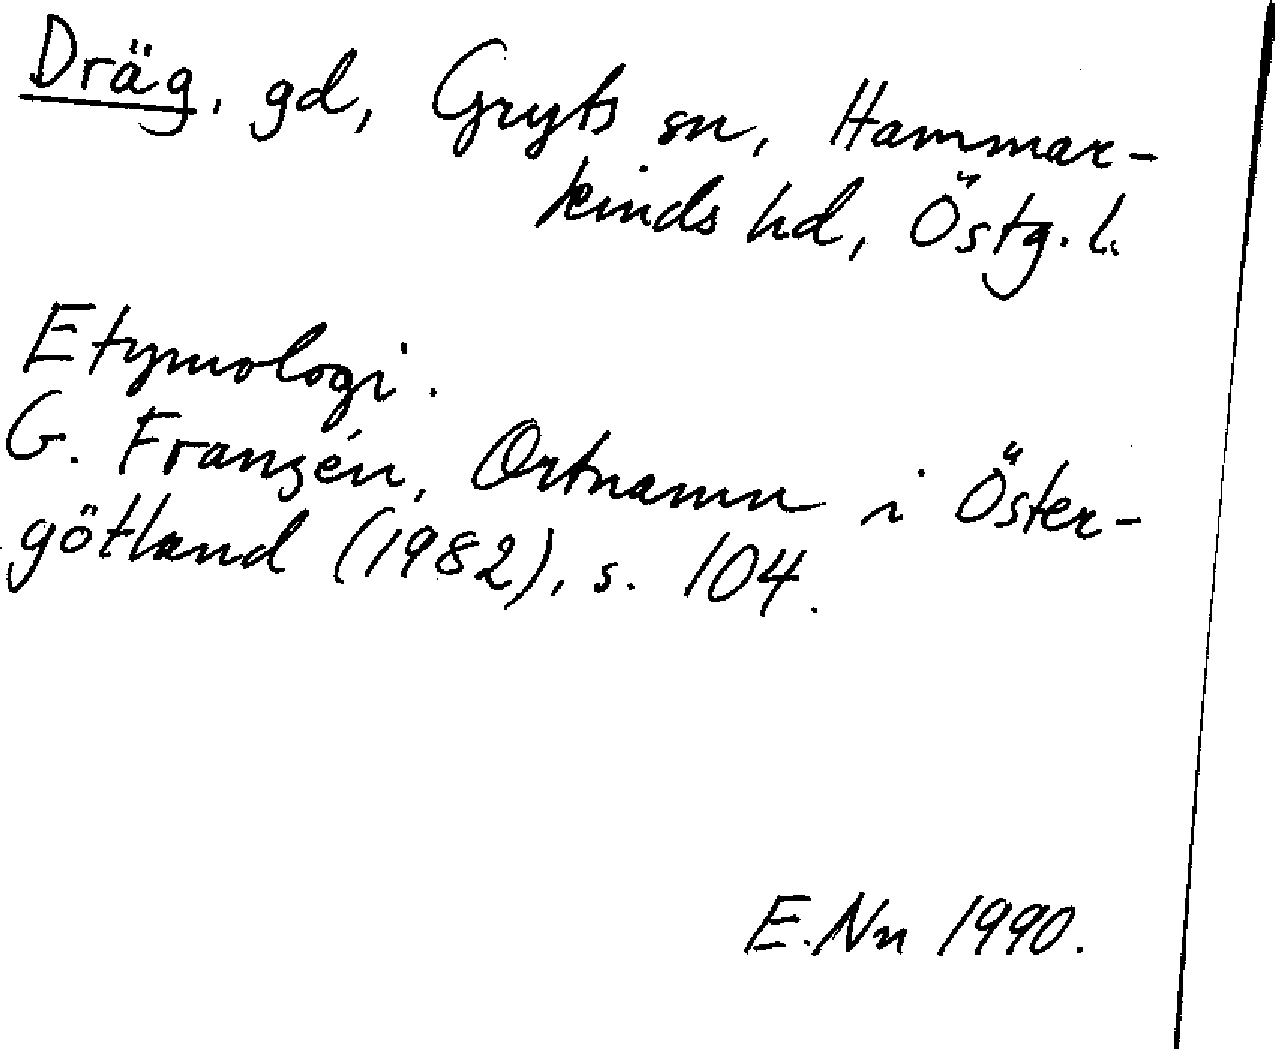 Dräg, gd, Gryts sn, Hammar-
kinds hd, Östg. l.
Etymologi.
G. Franzén, Ortnamn i Öster-
götland (1982), s. 104.
E. Nn 1990.